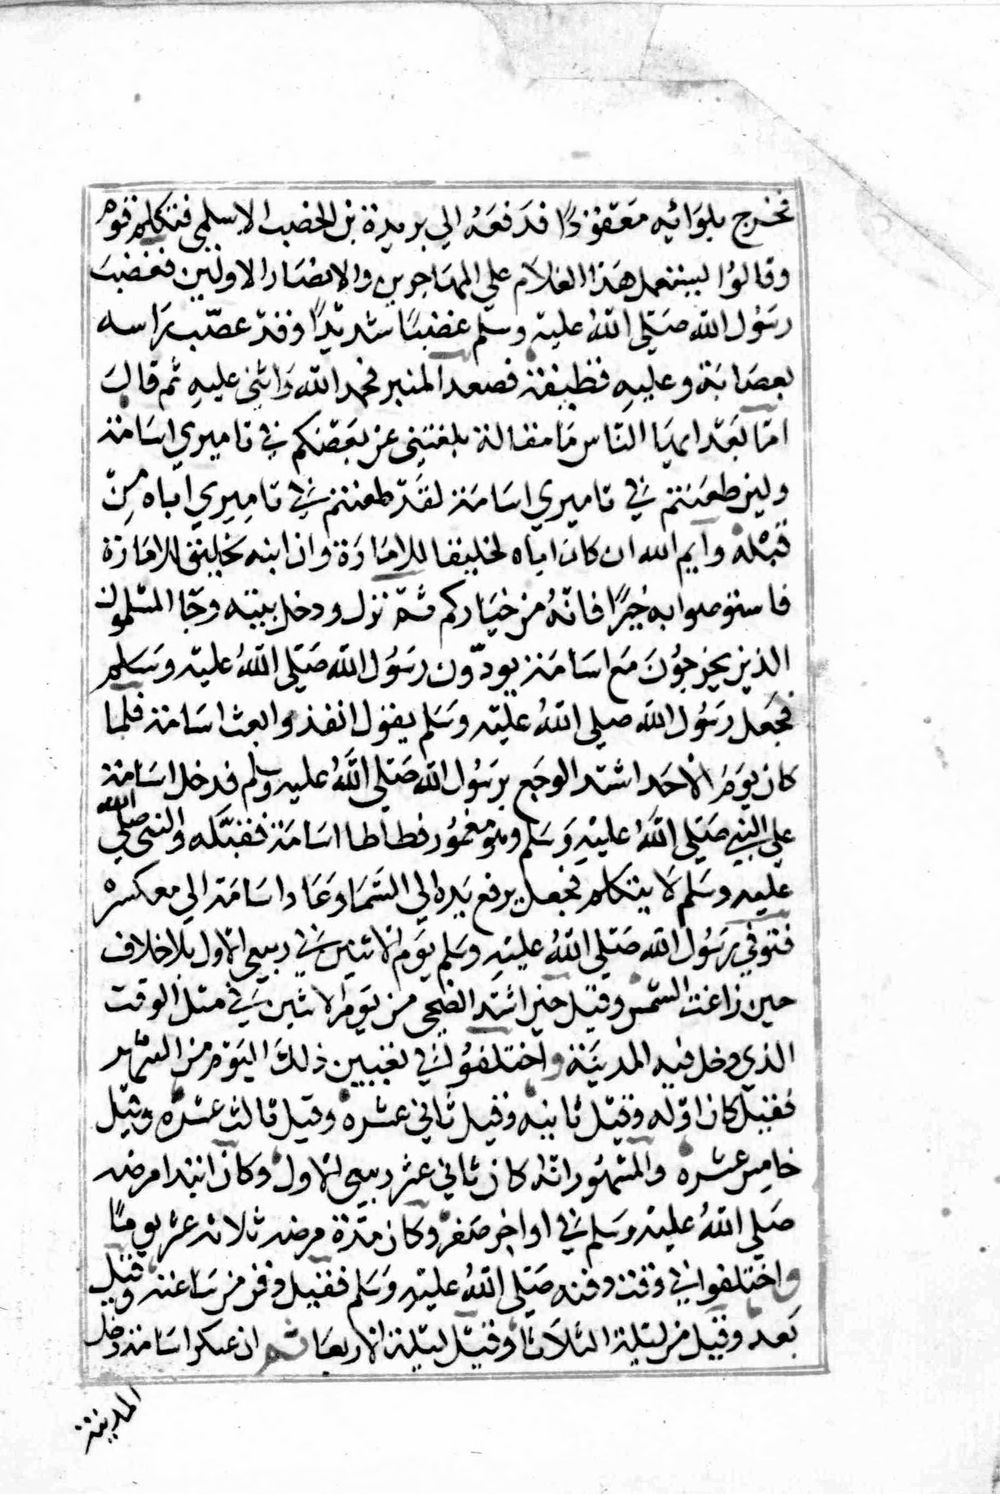 فخرج بلوائه معقودًا فدفعه الي بريدة بن الحصيب الاسلمي فتكلم قوم
وقالوا يستعمل هذا الغلام علي المهاجرين والانصار الاولين فغضب
رسول الله صلي الله عليه وسلم غضبًا شديدًا وقد عصّب براسه
بعصابة وعليه قطيفة فصعد المنبر فحمد الله واثني عليه ثم قال
امّا بعد ايها الناس ما مقالة بلغتني عن بعضكم في تاميري اسامة
ولين طعنتم في تاميري اسامة لقد طعنتم في تاميري اباه من
قبله وايم الله ان كان اباه لخليقا للامارة وان ابنه لخليق للامارة
فاستوصوا به خيرًا فانّه من خياركم ثمّ نزل ودخل بيته وجا المسلمون
الذين يخرجون مع اسامة يودّعون رسول الله صلي الله عليه وسلم
فجعل رسول الله صلي الله عليه وسلم يقول انفذوا بعث اسامة فلما
كان يوم الاحد اشتد الوجع برسول الله صلي الله عليه وسلم فدخل اسامة
علي النبي صلي الله عليه وسلم وهو مغمور فطاطا اسامة فقبّله والنبي صلي الله
عليه وسلم لا يتكلم فجعل يرفع يده الي السما ودعا واسامة الي معكسره
فتوفي رسول الله صلي الله عليه وسلم يوم الاثنين في ربيع الاول بلا خلاف
حين زاغت الشمس وقيل حين اشتد الضحي من يوم الاثنين في مثل الوقت
الذي دخل فيه المدينة واختلفوا في تعيين ذلك اليوم من الشهر
فقيل كان اوّله وقيل ثانيه وقيل ثاني عشره وقيل ثالث عشره وقيل
خامس عشره والمشهور انه كان ثاني عشر ربيع الاول وكان ابتدا مرضه
صلي الله عليه وسلم في اواخر صفر وكان مدّة مرضه ثلاثة عشر يومًا
واختلفوا في وقت دفنه صلي الله عليه وسلم فقيل دفن من ساعته وقيل
بعده وقيل من ليلة الثلاثا وقيل ليلة الاربعا ثم ان عسكر اسامة دخل
المدينة